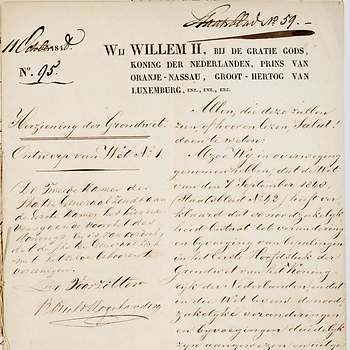 Staatsblad No. 59.
No. 95.
WIJ WILLEM II, BIJ DE GRATIE GODS,
KONING DER NEDERLANDEN, PRINS VAN
ORANJE-NASSAU, GROOT-HERTOG VAN
LUXEMBURG, ENZ., ENZ., ENZ.
Herziening der Grondwet.
Ontwerp van Wet No. 1.
De Tweede Kamer der
Staten Generaal zendt aan
de Eerste Kamer
voorstel des
Konings
De Voorzitter
Allen, die deze zullen
zien of hooren lezen, Salut!
doen te weten:
Alzoo Wij in overweging
genomen hebben, dat de Wet
van den 7 September 1848,
(Staatsblad No. 42,) heeft ver-
klaard dat er noodzakelijk-
heid bestaat tot verandering
en bijvoeging van bepalingen
in het eerste Hoofdstuk der
Grondwet van het Koning-
rijk der Nederlanden, en dat
in die Wet bevend de nood-
zakelijke veranderingen
en bijvoegingen duidelijk
zijn aangewezen en uitge-